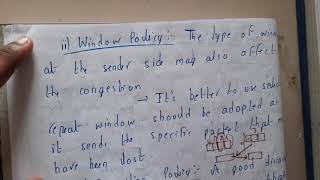 ii) Window Policy :- The type of win
at the sender side may also affect
the congestion
→ It's better to use selec
repeat window should be adopted as
it sends the specific packet that m
have been lost.
Policy :- A good